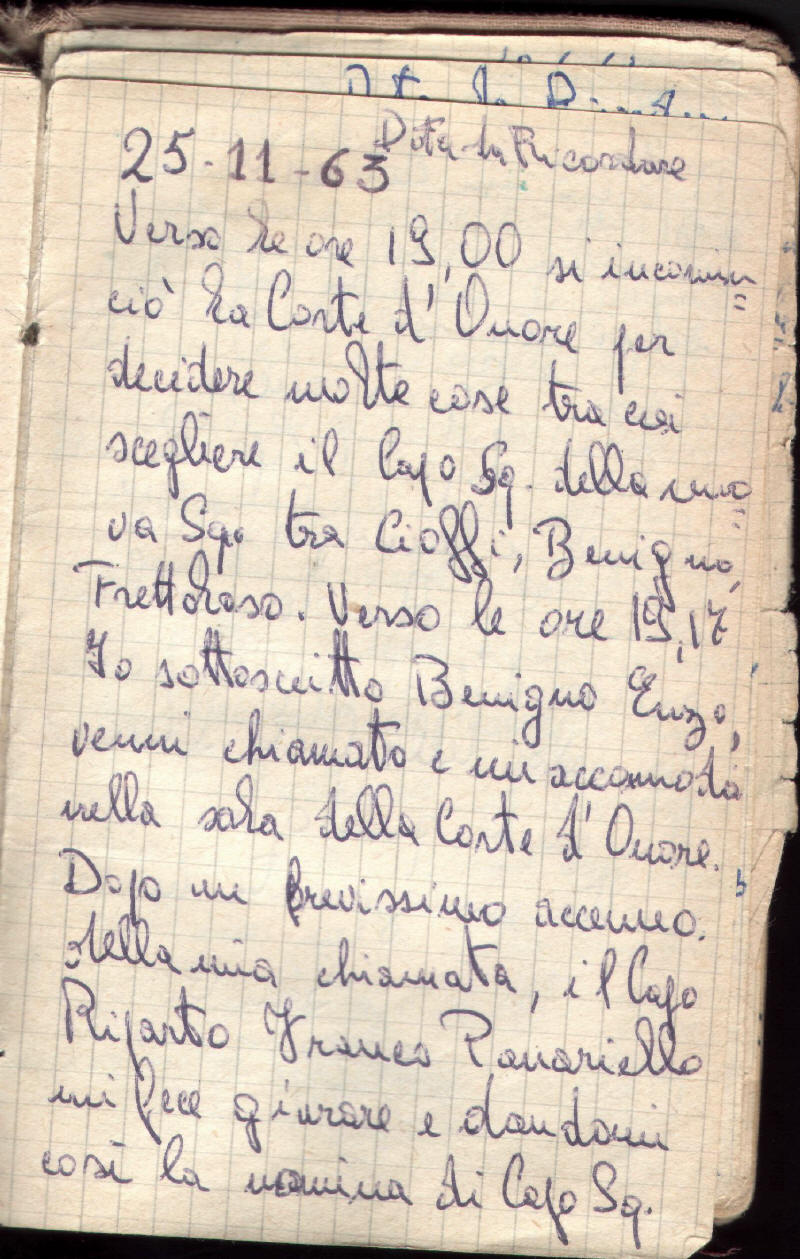 25-11-63 Data da Ricordare
Verso le ore 19,00 si incomin=
ciò la Corte d'Onore per
decidere molte cose tra cui
scegliere il Capo Sq. della nuo=
va Sq. tra Cioffi, Benigno,
Frettoloso. Verso le ore 19,17
Io sottoscritto Benigno Enzo,
venni chiamato e mi accomodai
nella sala della Corte d'Onore.
Dopo un brevissimo accenno.
della mia chiamata, il Capo
Riparto Franco Panariello
mi fece giurare e dandomi
così la nomina di Capo Sq.